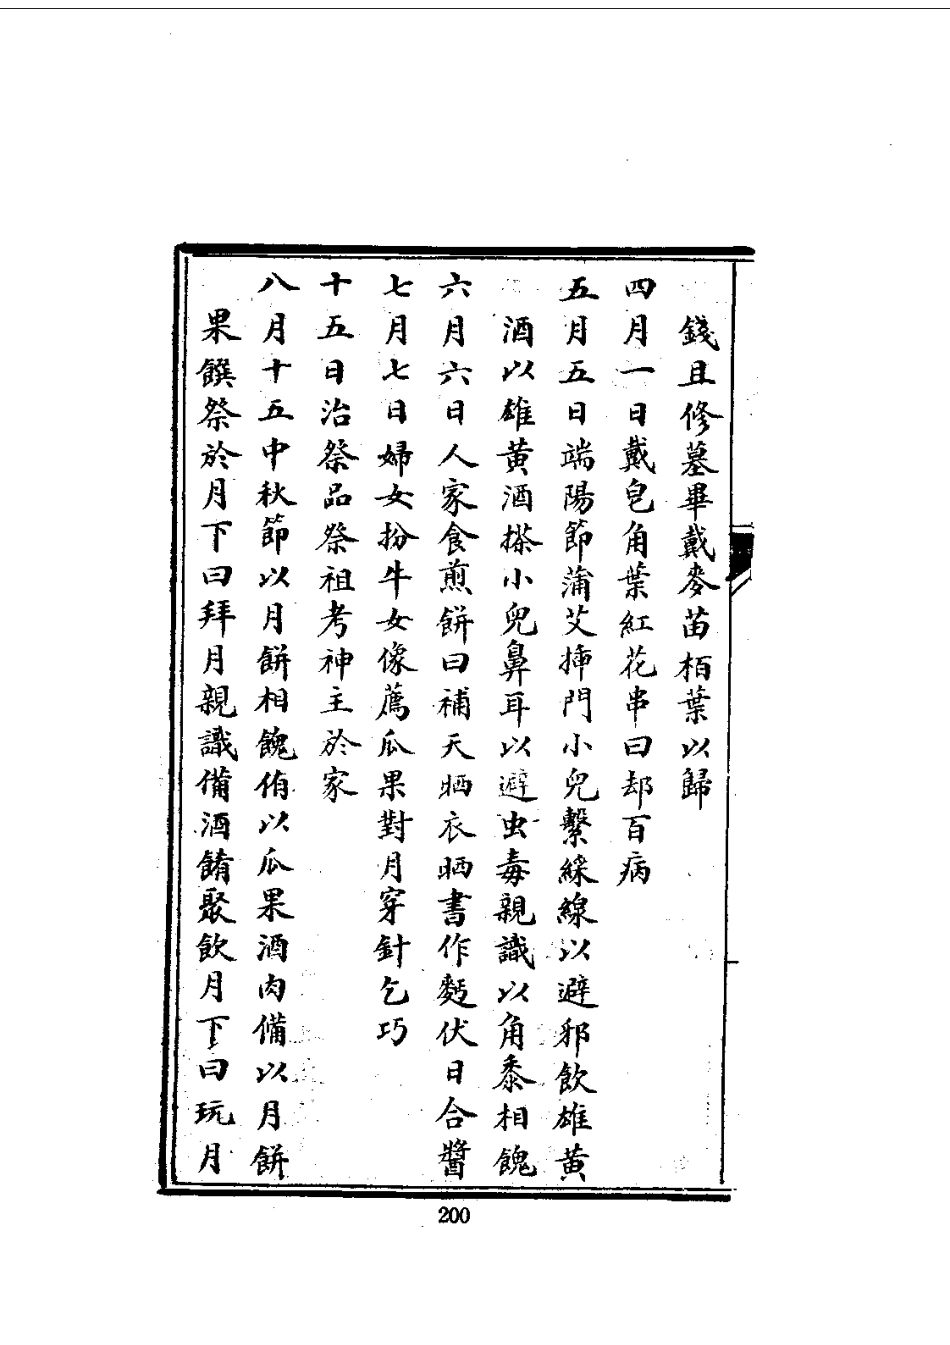 錢且修墓畢戴麥苗栢葉以歸
四月一日戴皂角葉紅花串曰却百病
五月五日端陽節蒲艾揷門小兒繫綵線以避邪飲雄黃
酒以雄黃酒搽小兒鼻耳以避虫毒親識以角黍相餽
六月六日人家食煎餅曰補天晒衣晒書作麫伏日合醬
七月七日婦女扮牛女像薦瓜果對月穿針乞巧
十五日治祭品祭祖考神主於家
八月十五中秋節以月餅相餽侑以瓜果酒肉備以月餅
果饌祭於月下曰拜月親識備酒餚聚飲月下曰玩月
200